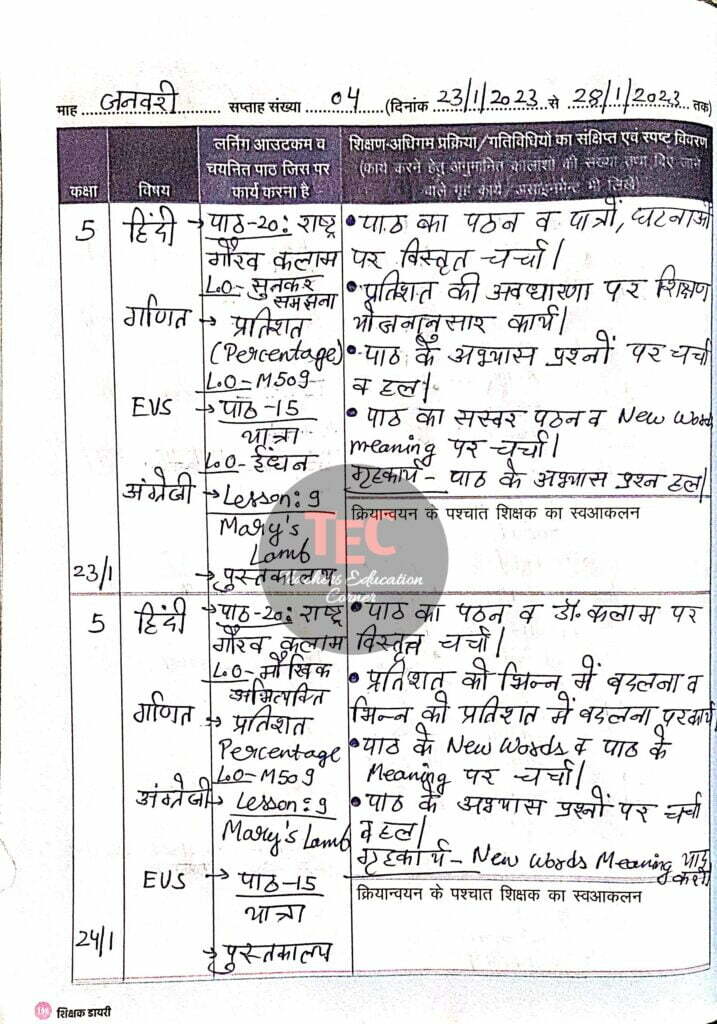 माह जनवरी सप्ताह संख्या 04 (दिनांक 23/1/2023 से 28/1/2023 तक)
कक्षा
विषय
लर्निंग आउटकम व
चयनित पाठ जिस पर
कार्य करना है
शिक्षण-अधिगम प्रक्रिया/गतिविधियों का संक्षिप्त एवं स्पष्ट विवरण
(कार्य करने हेतु अनुमानित कालांशो की संख्या तथा दिए जाने
वाले गृह कार्य/असाइनमेन्ट भी लिखें)
5
23/1
हिंदी
गणित
EVS
अंग्रेजी
→ पाठ-20: राष्ट्र
गौरव कलाम
L.O- सुनकर
समझना
→ प्रतिशत
(Percentage)
L.O-M509
→ पाठ-15
यात्रा
L.O- ईंधन
→ Lesson: 9
Mary's
Lamb
→ पुस्तकालय
• पाठ का पठन व पात्रों, घटनाओं
पर विस्तृत चर्चा।
• प्रतिशत की अवधारणा पर शिक्षण
योजनानुसार कार्य।
• पाठ के अभ्यास प्रश्नों पर चर्चा
व हल।
• पाठ का सस्वर पठन व New Words
meaning पर चर्चा।
गृहकार्य - पाठ के अभ्यास प्रश्न हल।
क्रियान्वयन के पश्चात शिक्षक का स्वआकलन
TEC
Teachers Education
Corner
5
24/1
हिंदी
गणित
अंग्रेजी
EVS
→ पाठ-20: राष्ट्र
गौरव कलाम
L.O- मौखिक
अभिव्यक्ति
→ प्रतिशत
Percentage
L.O-M509
→ Lesson: 9
Mary's Lamb
→ पाठ-15
यात्रा
→ पुस्तकालय
• पाठ का पठन व डॉ. कलाम पर
विस्तृत चर्चा।
• प्रतिशत को भिन्न में बदलना व
भिन्न को प्रतिशत में बदलना पर कार्य।
• पाठ के New Words व पाठ के
Meaning पर चर्चा।
• पाठ के अभ्यास प्रश्नों पर चर्चा
व हल।
गृहकार्य - New Words Meaning याद
करो
क्रियान्वयन के पश्चात शिक्षक का स्वआकलन
शिक्षक डायरी